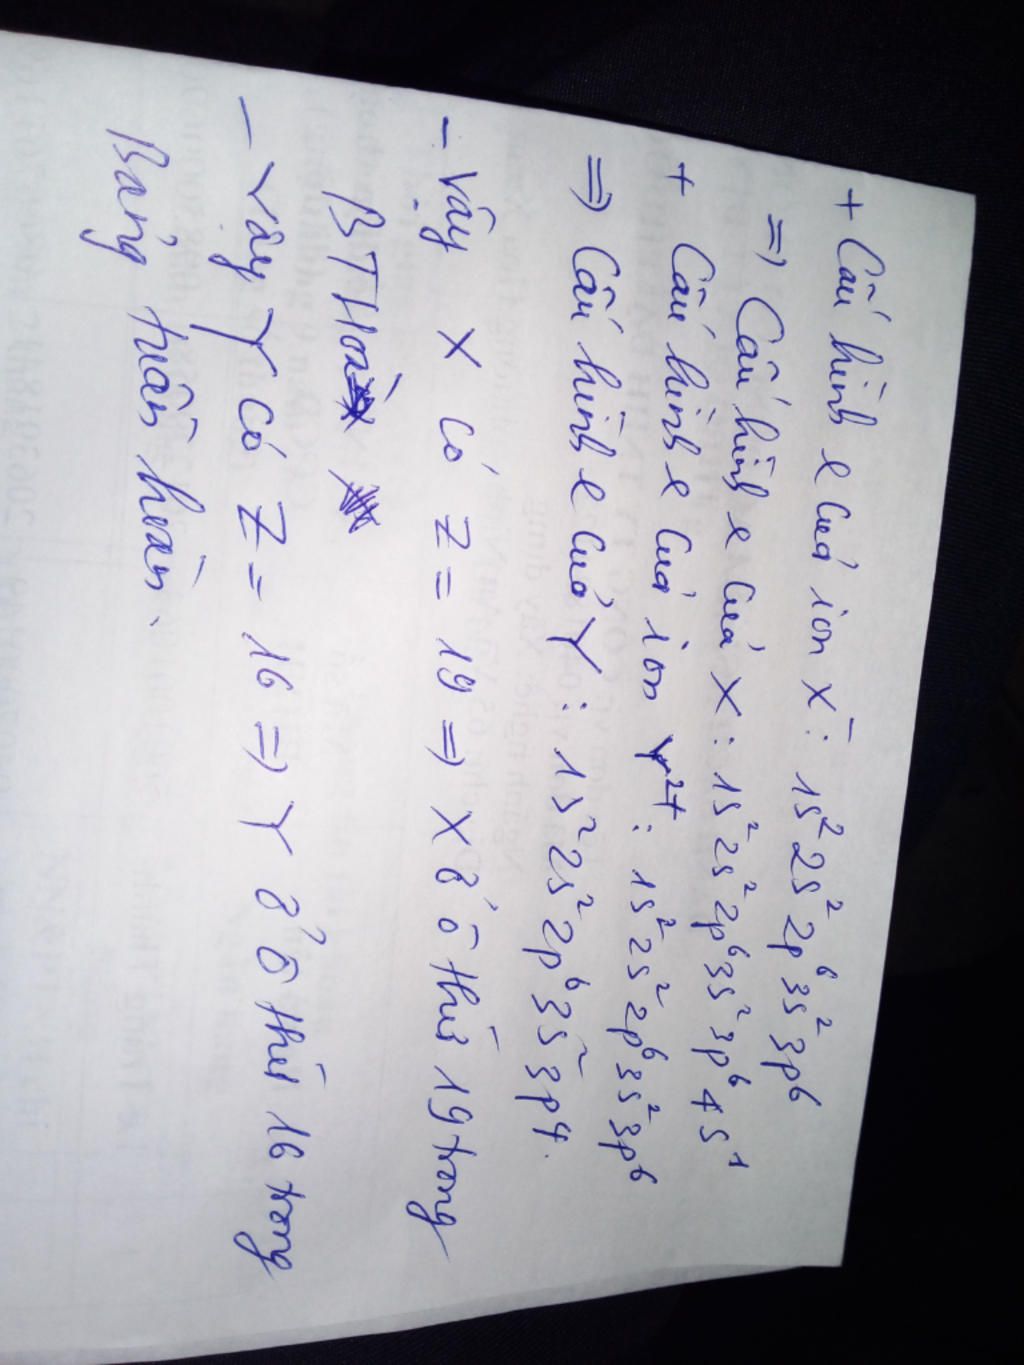 + Cấu hình e của ion X⁻: 1s² 2s² 2p⁶ 3s² 3p⁶
=> Cấu hình e của X: 1s² 2s² 2p⁶ 3s² 3p⁶ 4s¹
+ Cấu hình e của ion Y²⁺: 1s² 2s² 2p⁶ 3s² 3p⁶
=> Cấu hình e của Y: 1s² 2s² 2p⁶ 3s² 3p⁴.
- Vậy X có Z = 19 => X ở ô thứ 19 trong
BT Hoàn
- Vậy Y có Z = 16 => Y ở ô thứ 16 trong
Bảng tuần hoàn.